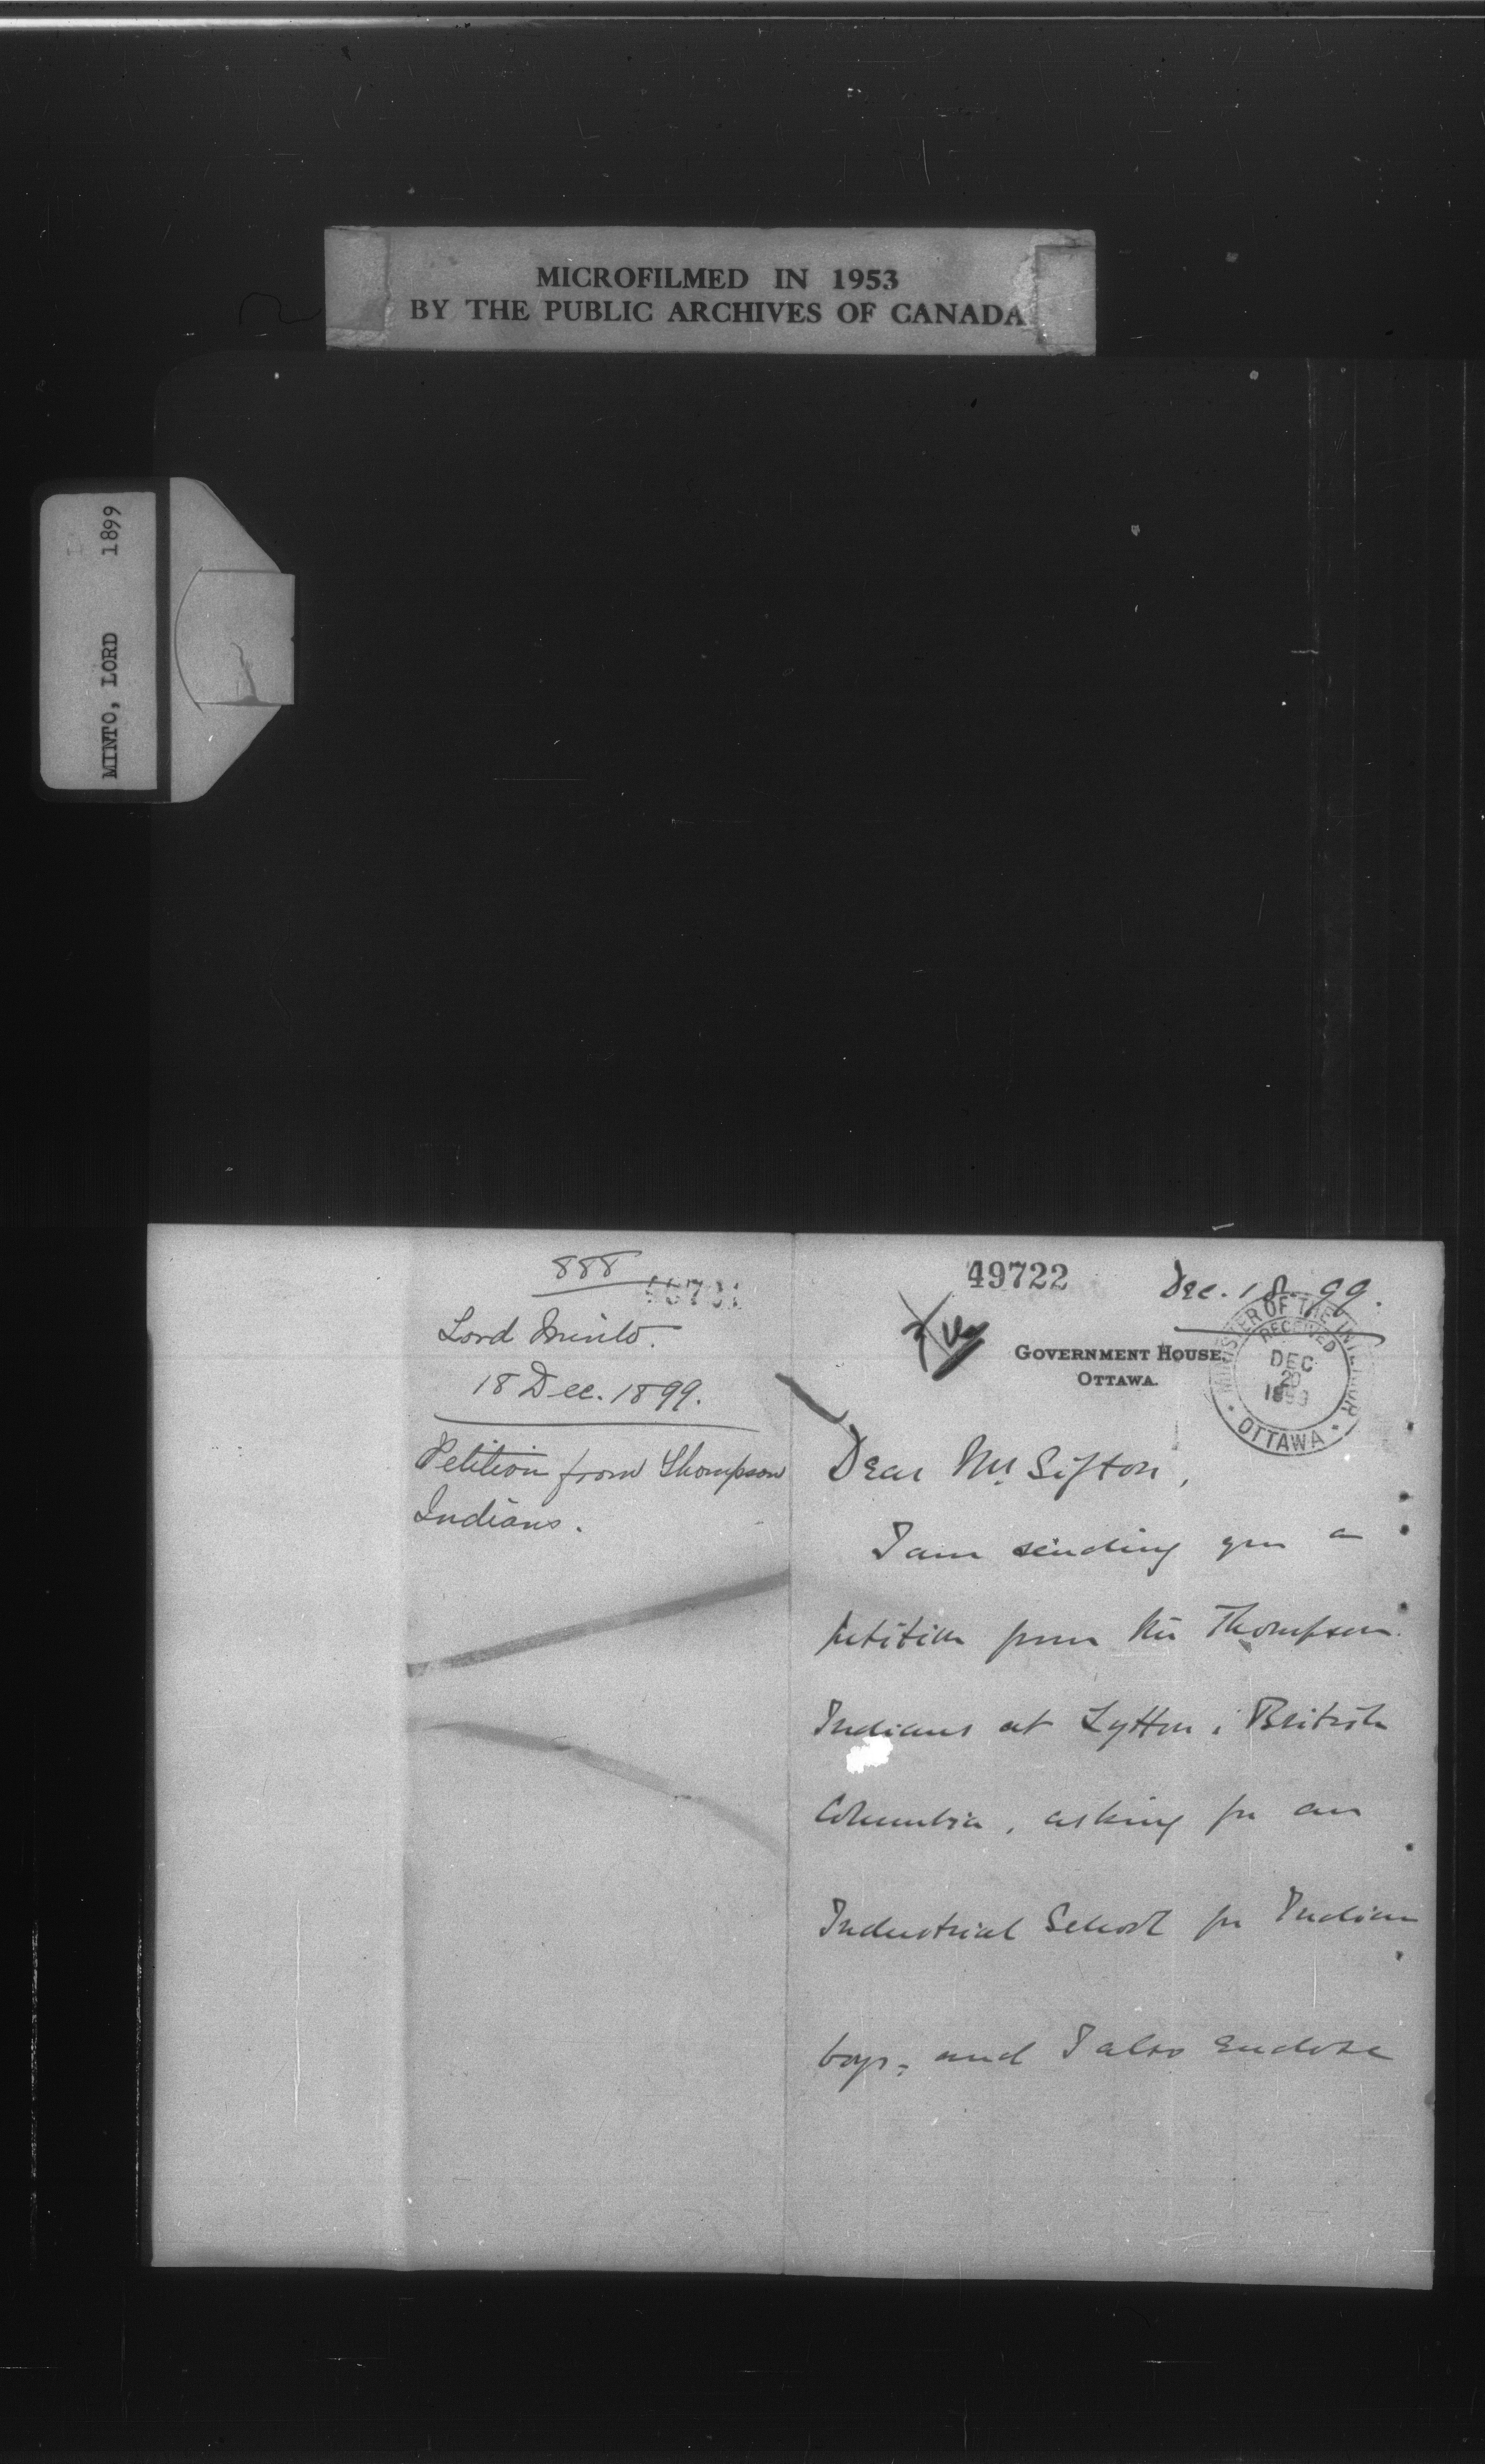 MICROFILMED IN 1953
BY THE PUBLIC ARCHIVES OF CANADA
MINTO, LORD 1899
888
Lord Minto.
18 Dec. 1899.
Petition from Thompson
Indians.
49722
Dec. 18. 99.
GOVERNMENT HOUSE,
OTTAWA.
MINISTER OF THE INTERIOR
RECEIVED
DEC
1899
OTTAWA
Dear Mr. Sifton,
I am sending you a
petition from the Thompson
Indians at Lytton, British
Columbia, asking for an
Industrial School for Indian
boys, and I also enclose